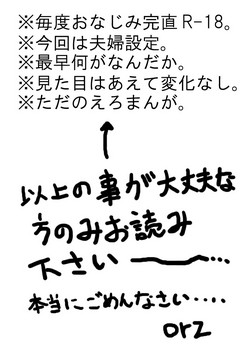 ※毎度おなじみ完直R-18。
※今回は夫婦設定。
※最早何がなんだか。
※見た目はあえて変化なし。
※ただのえろまんが。
↑
以上の事が大丈夫な
方のみお読み
下さい──…
本当にごめんなさい‥‥
orz